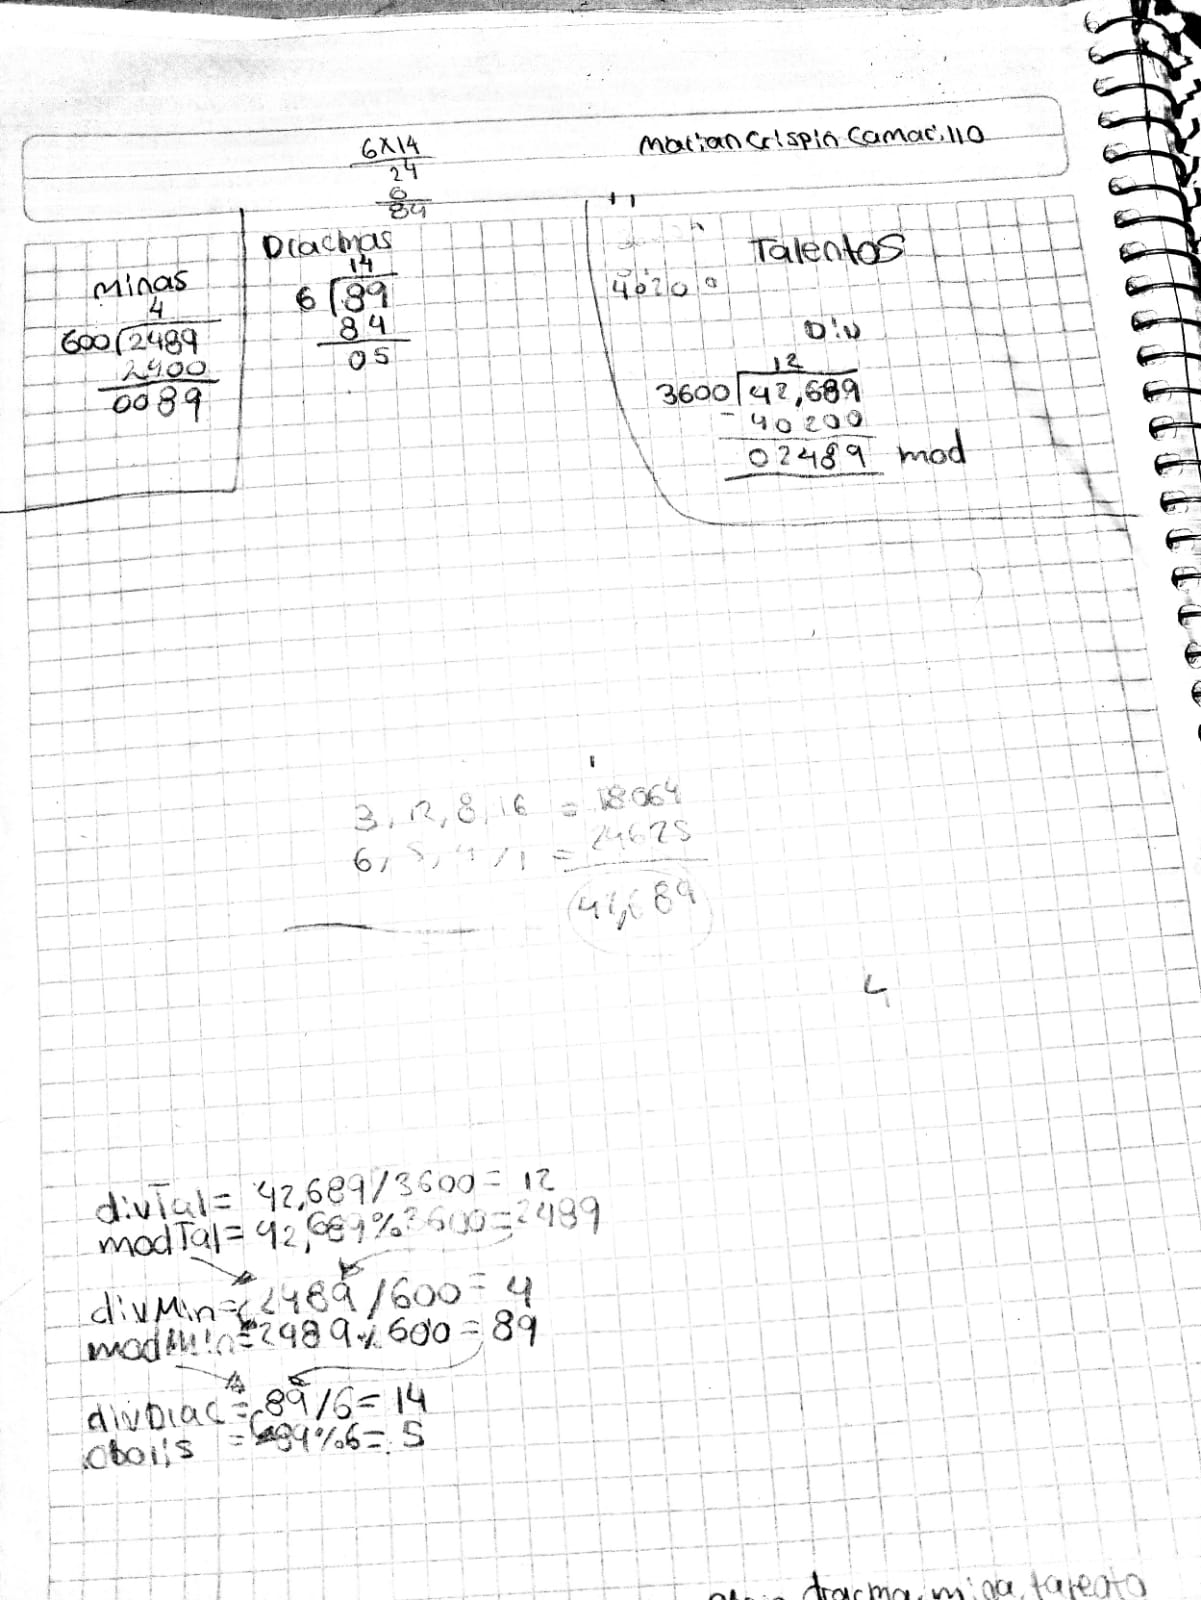 6x14
24
6
84
Marian Crispin Camarillo
Minas
4
600 2489
2400
0089
Dracmas
14
6 89
84
05
Talentos
40200
Div
12
3600 42,689
- 40200
02489 mod
3, 12, 8, 16 = 18064
6, 5, 4, 1 = 24625
42,689
4
divTal = 42,689/3600 = 12
modTal = 42,689%3600 = 2489
divMin = 2489/600 = 4
modMin = 2489%600 = 89
divDrac = 89/6 = 14
Obolis = 89%6 = 5
dracma, mina, talento